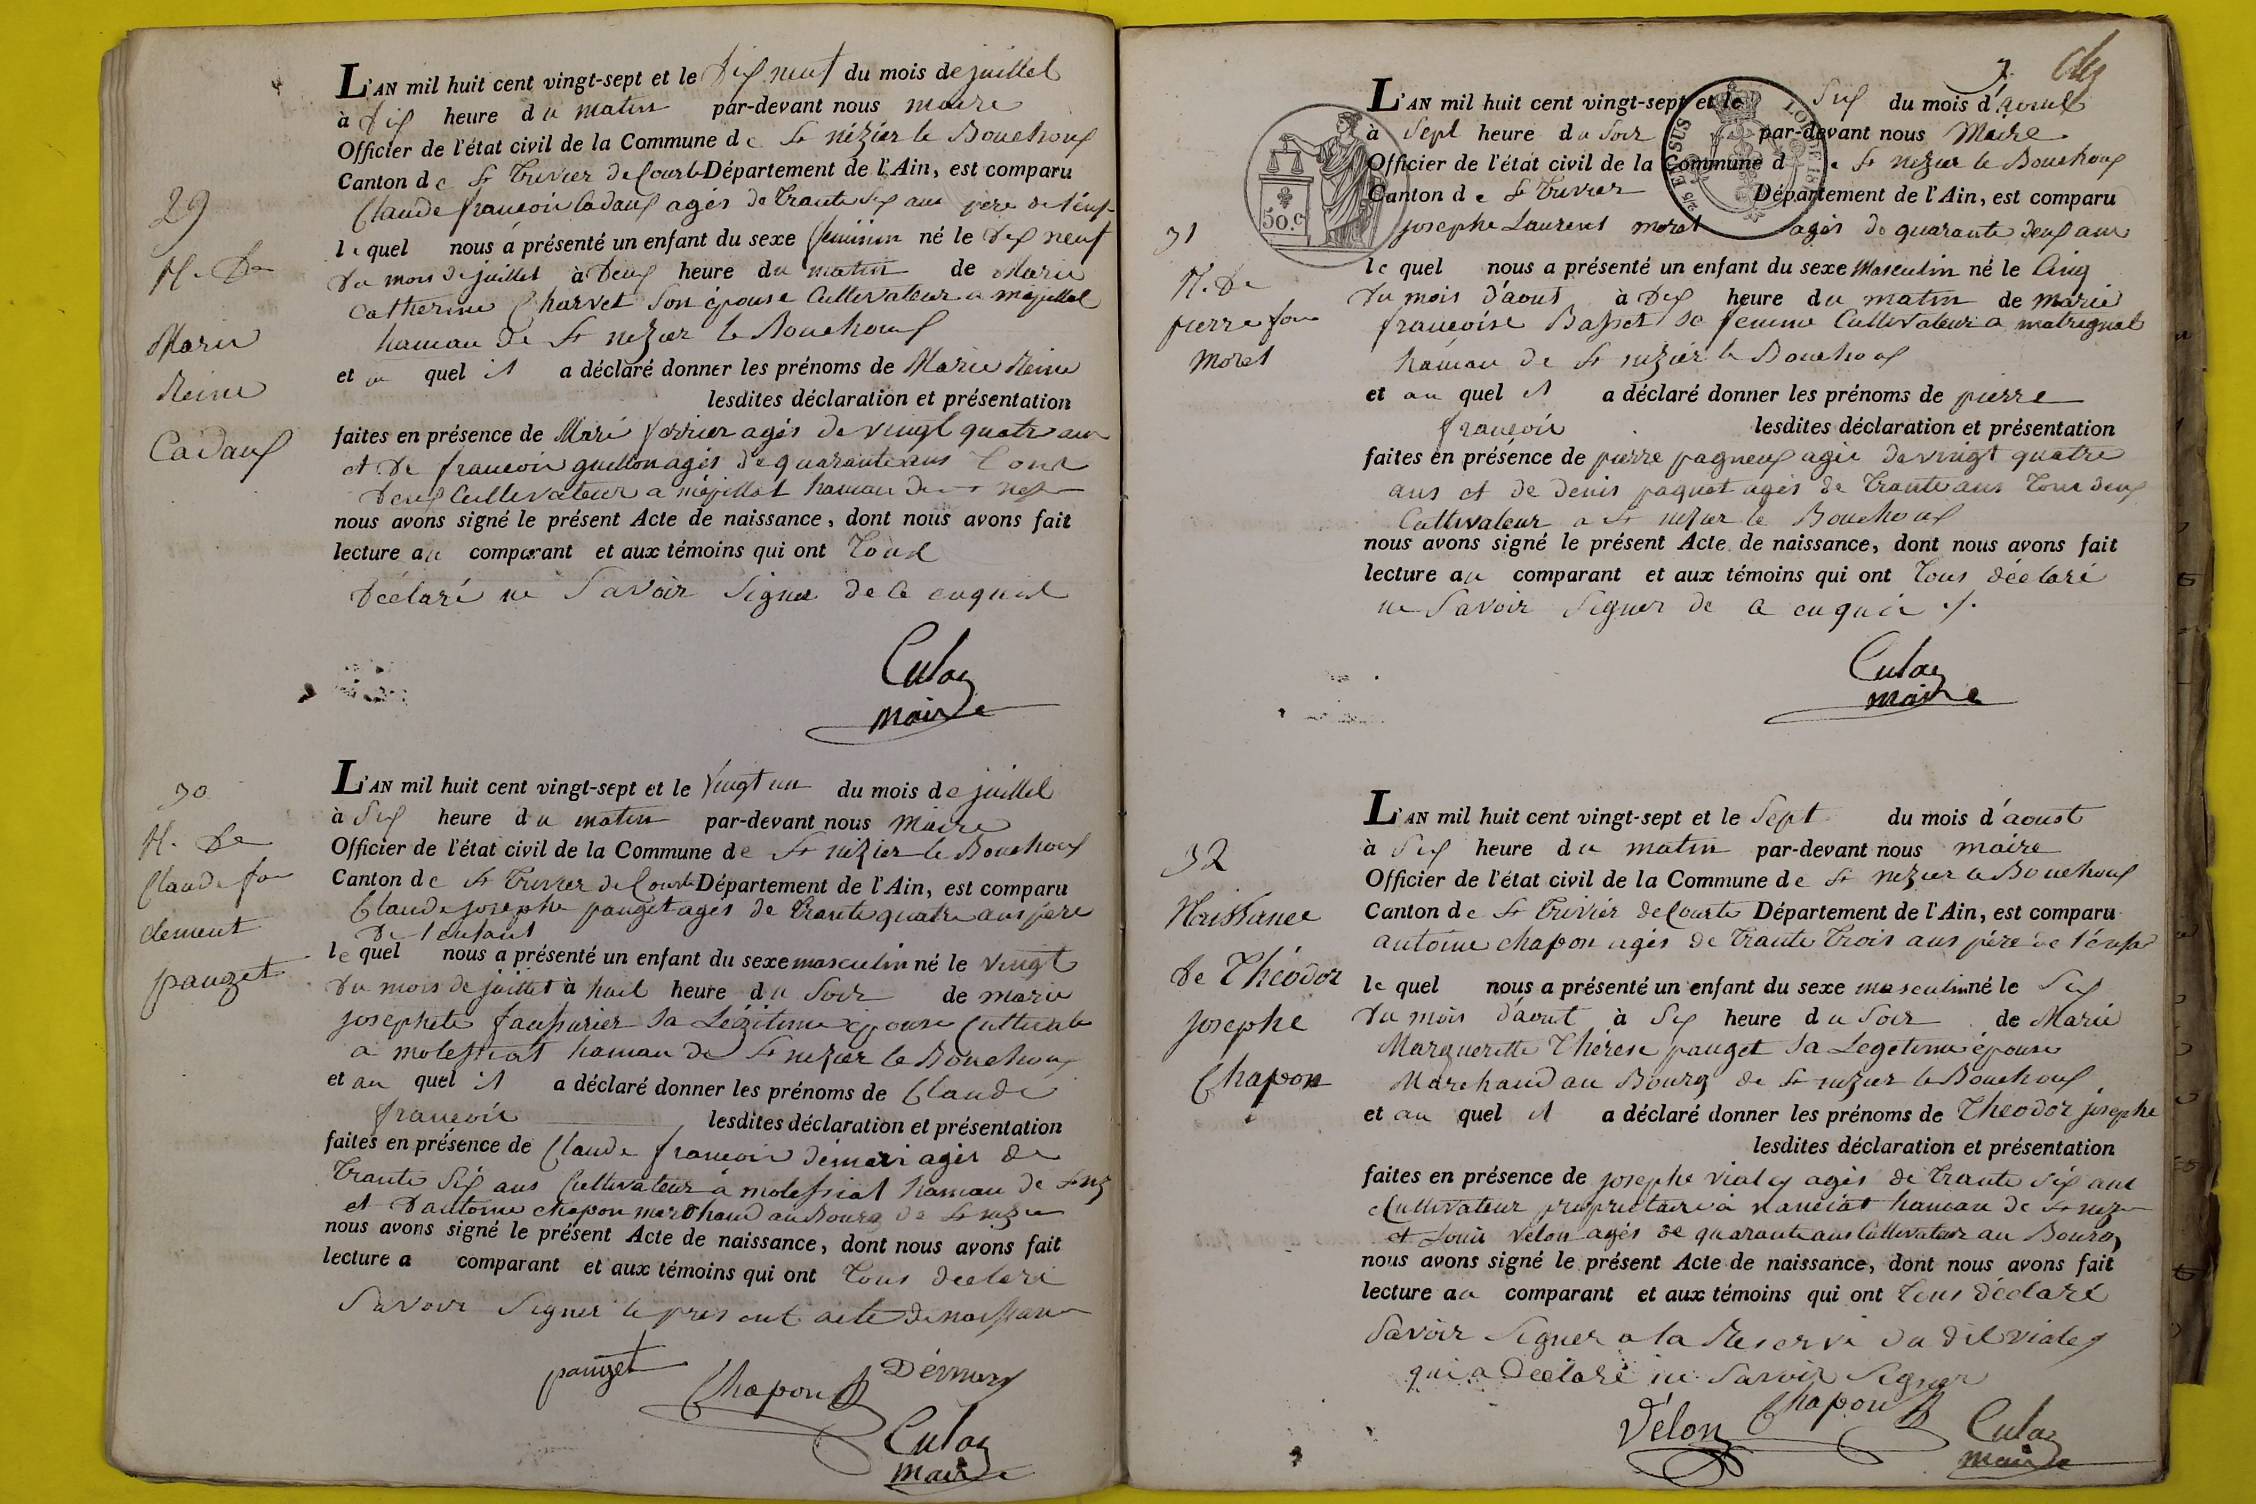 29
N. De
Marie
Reine
Cadaux
L'AN mil huit cent vingt-sept et le dix neuf du mois de juillet
à dix heure du matin par-devant nous maire
Officier de l'état civil de la Commune de St nézier le Bouchoux
Canton de St Trivier de Courte Département de l'Ain, est comparu
Claude francois Cadaux agés de trante six ans père de l'enft
lequel nous a présenté un enfant du sexe feminin né le dix neuf
du mois de juillet à deux heure du matin de Marie
Catherine Charvet son épouse Cultivateur a
hameau de St nezier le Bouchoux
et au quel il a déclaré donner les prénoms de Marie Reine
lesdites déclaration et présentation
faites en présence de Marie agés de vingt quatre ans
et de francois guillon agés de quarante ans tous
deux Cultivateur a hameau de St nez
nous avons signé le présent Acte de naissance, dont nous avons fait
lecture au comparant et aux témoins qui ont tous
déclaré ne Savoir Signer de ce enquis
Culaz
maire
30
N. De
Claude fois
clement
pauget
L'AN mil huit cent vingt-sept et le vingt un du mois de juillet
à Six heure du matin par-devant nous maire
Officier de l'état civil de la Commune de St nézier le Bouchoux
Canton de St Trivier de Courte Département de l'Ain, est comparu
Claude josephe pauget agés de trante quatre ans père
de l'enfant
lequel nous a présenté un enfant du sexe masculin né le vingt
du mois de juillet à huit heure du Soir de marie
josephete sa Légitime épouse Cultivate
a molessiat hameau de St nezier le Bouchoux
et au quel il a déclaré donner les prénoms de Claude
francois lesdites déclaration et présentation
faites en présence de Claude francois agés de
trante Six ans Cultivateur à molessiat hameau de St nez
et d'antoine chapon marchand au Bourg de St nezie
nous avons signé le présent Acte de naissance, dont nous avons fait
lecture a comparant et aux témoins qui ont tous declaré
Savoir Signer le present acte de naissance
pauget
Chapon
Culaz
maire
7
31
N. De
pierre fois
Moret
50.c
EN SUS
LOI DE 1816
L'AN mil huit cent vingt-sept et le Six du mois d'aout
à Sept heure du Soir par-devant nous Maire
Officier de l'état civil de la Commune de St nezier le Bouchoux
Canton de St Trivier Département de l'Ain, est comparu
josephe Laurent moret agés de quarante deux ans
lequel nous a présenté un enfant du sexe Masculin né le Cinq
du mois d'aout à dix heure du matin de marie
francoise Basset sa femme Cultivateur a matrignat
hameau de St nezier le Bouchoux
et au quel il a déclaré donner les prénoms de pierre
francois lesdites déclaration et présentation
faites en présence de pierre pagneux agés de vingt quatre
ans et de denis paquet agés de trante ans tous deux
Cultivateur a St nezier le Bouchoux
nous avons signé le présent Acte de naissance, dont nous avons fait
lecture au comparant et aux témoins qui ont tous déclaré
ne Savoir Signer de ce enquis
Culaz
maire
32
Naissance
de Théodor
josephe
Chapon
L'AN mil huit cent vingt-sept et le Sept du mois d'aoust
à Six heure du matin par-devant nous maire
Officier de l'état civil de la Commune de St nezier le Bouchoux
Canton de St Trivier de Courte Département de l'Ain, est comparu
antoine chapon agés de trante trois ans père de l'enfat
lequel nous a présenté un enfant du sexe masculin né le Six
du mois d'aout à Six heure du Soir de Marie
Marguerette Thérése pauget Sa Legetime épouse
Marchand au Bourg de St nezier le Bouchoux
et au quel il a déclaré donner les prénoms de Théodor josephe
lesdites déclaration et présentation
faites en présence de josephe vialey agés de trante Six ans
Cultivateur propriétaire à hameau de St nez
et Louis velon agés de quarante ans Cultivateur au Bourg
nous avons signé le présent Acte de naissance, dont nous avons fait
lecture au comparant et aux témoins qui ont tous déclaré
Savoir Signer a la Reserve du dit vialey
qui a declaré ne Savoir Signer
Vélon
Chapon
Culaz
maire